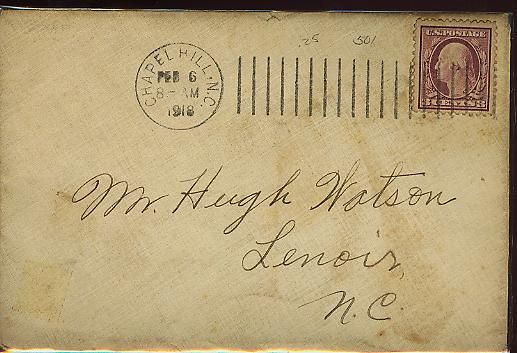 .25 501
U.S. POSTAGE
CHAPEL HILL, N.C.
FEB 6
8-AM
1918
3 CENTS 3
Mr. Hugh Watson
Lenoir,
N.C.